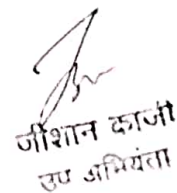 जीशान काजी
उप अभियंता